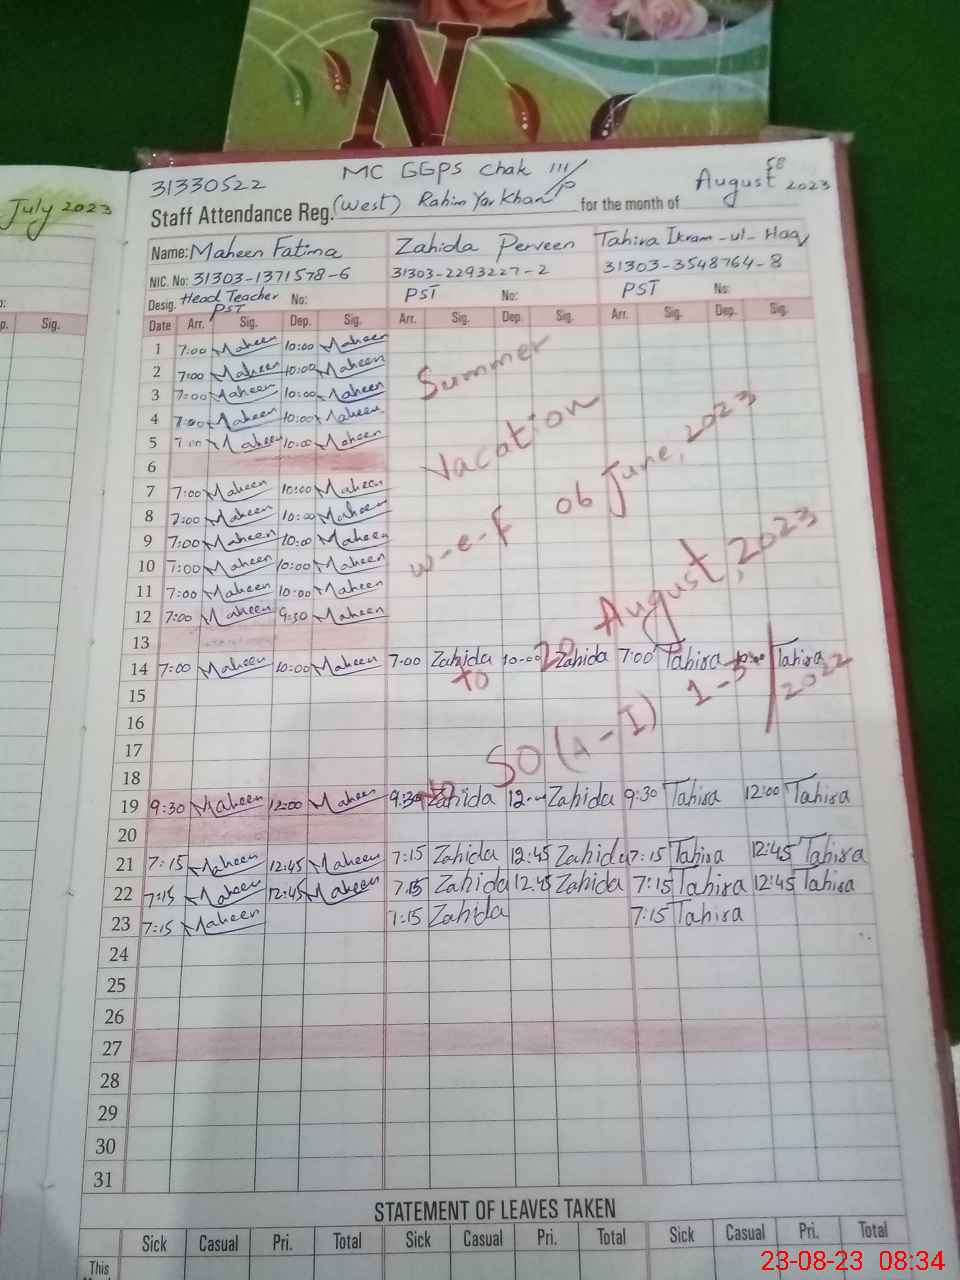 N
July 2023
p. Sig.
58
31330522 MC GGPS Chak 111/P August 2023
Staff Attendance Reg. (West) Rahim Yar Khan for the month of
Name: Maheen Fatima Zahida Perveen Tahira Ikram-ul-Haq
NIC. No: 31303-1371578-6 31303-2293227-2 31303-3548764-8
Desig. Head Teacher No: PST No: PST No:
PST
Date Arr. Sig. Dep. Sig. Arr. Sig. Dep. Sig. Arr. Sig. Dep. Sig.
1 7:00 Maheen 10:00 Maheen
2 7:00 Maheen 10:00 Maheen
3 7:00 Maheen 10:00 Maheen
Summer
4 7:00 Maheen 10:00 Maheen
5 7:00 Maheen 10:00 Maheen
Vacation
6
7 7:00 Maheen 10:00 Maheen
w-e-f 06 June, 2023
8 7:00 Maheen 10:00 Maheen
9 7:00 Maheen 10:00 Maheen
10 7:00 Maheen 10:00 Maheen
11 7:00 Maheen 10:00 Maheen
12 7:00 Maheen 9:30 Maheen
13
to 20 August, 2023
14 7:00 Maheen 10:00 Maheen 7:00 Zahida 10:00 Zahida 7:00 Tahira 10:00 Tahira
15
16
17
SO (A-I) 1-5/2022
18
19 9:30 Maheen 12:00 Maheen 9:30 Zahida 12:00 Zahida 9:30 Tahira 12:00 Tahira
20
21 7:15 Maheen 12:45 Maheen 7:15 Zahida 12:45 Zahida 7:15 Tahira 12:45 Tahira
22 7:15 Maheen 12:45 Maheen 7:15 Zahida 12:45 Zahida 7:15 Tahira 12:45 Tahira
23 7:15 Maheen 7:15 Zahida 7:15 Tahira
24
25
26
27
28
29
30
31
STATEMENT OF LEAVES TAKEN
Sick Casual Pri. Total Sick Casual Pri. Total Sick Casual Pri. Total
This
23-08-23 08:34